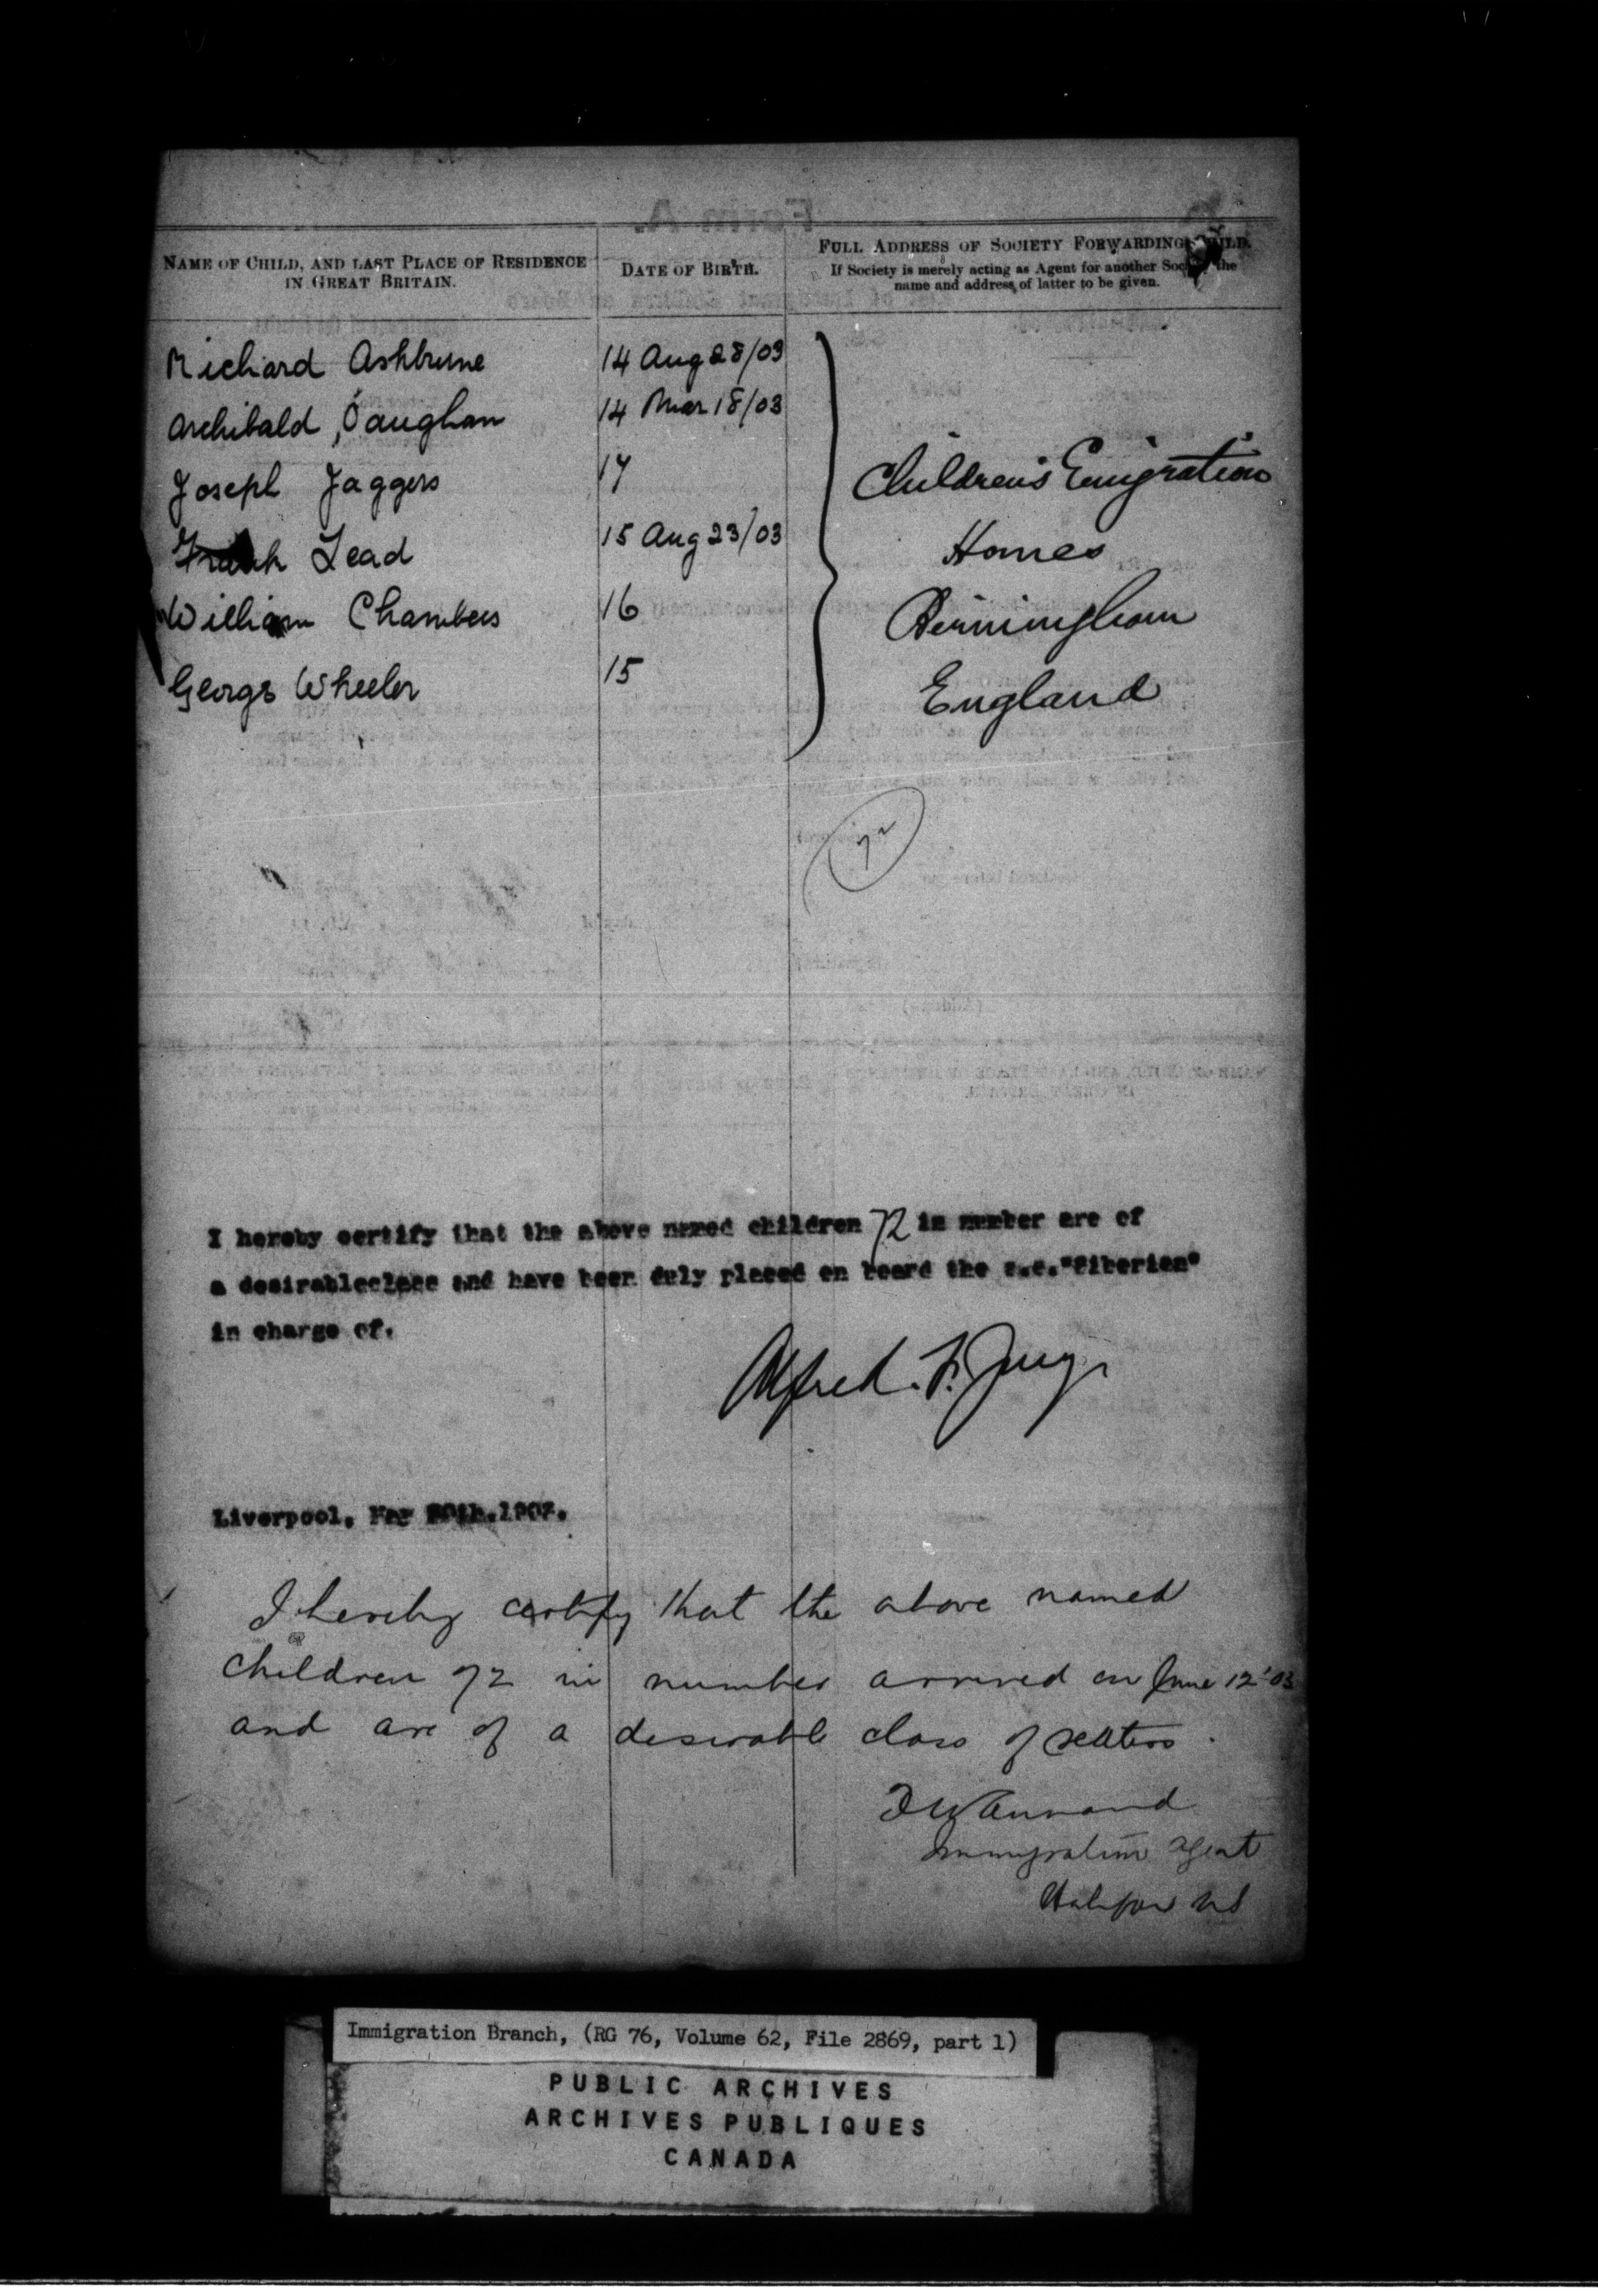 NAME OF CHILD, AND LAST PLACE OF RESIDENCE IN GREAT BRITAIN.
DATE OF BIRTH.
FULL ADDRESS OF SOCIETY FORWARDING CHILD.
If Society is merely acting as Agent for another Society the
name and address of latter to be given.
Richard Ashbrune 14 Aug 28/03
Archibald Vaughan 14 Mar 18/03
Joseph Jaggers 17
Frank Lead 15 Aug 23/03
William Chambers 16
George Wheeler 15
Children's Emigration
Homes
Birmingham
England
72
I hereby certify that the above named children 72 in number are of
a desirableclass and have been duly placed on board the s.s."Siberian"
in charge of.
Alfred. F. Jury
Liverpool, May 1903.
I hereby certify that the above named
children 72 in number arrived on June 12 '03
and are of a desirable class of settlers.
F W Annand
Immigration Agent
Halifax NS
Immigration Branch, (RG 76, Volume 62, File 2869, part 1)
PUBLIC ARCHIVES
ARCHIVES PUBLIQUES
CANADA